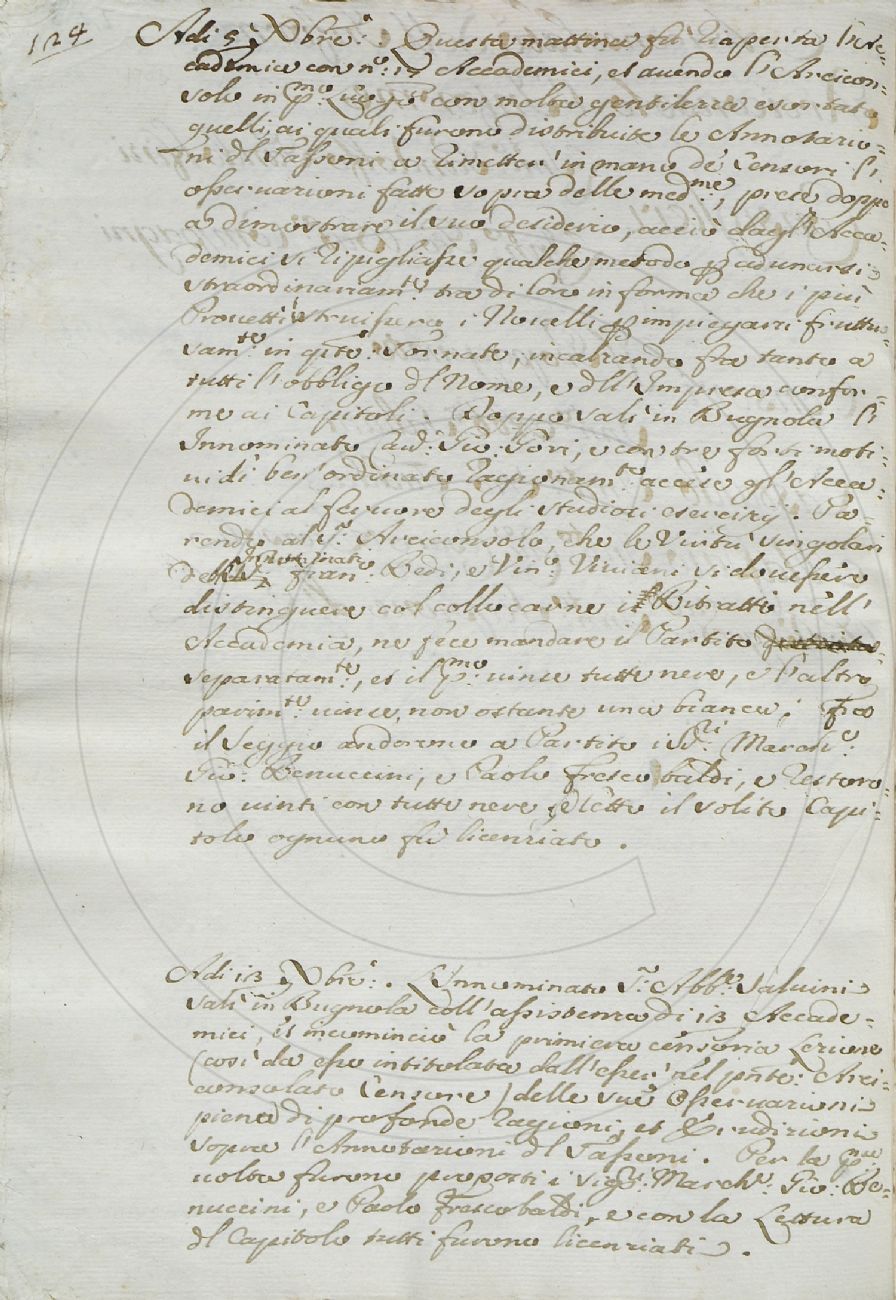 124
Adi 5 Xbre: Questa mattina fù riaperta l'Ac=
cademia con n.o 17 Accademici, et avendo l'Arcicon=
solo in pmo. Luogo con molta gentilezza esortato
quelli, ai quali furono distribuite le Annotazio=
ni dl Tassoni a rimetter' in mano de' Censori l'
osservazioni fatte sopra delle medme, prese doppo
a dimostrare il suo desiderio, acciò dagl'Acca=
demici si ripigliasse qualche metodo p adunarsi
straordinariamte. tra di loro in forma che i più
Provetti istruissero i Novelli p impiegarsi fruttuo=
samte. in qste. Tornate, incalzando fra tanto a
tutti l'obbligo dl Nome, e dll'Impresa confor=
me ai Capitoli. Doppo salì in Bugnola l'
Innominato Aud: Gio: Fori, e con tre forti moti=
vi di ben'ordinato ragionamto. accese gl'Acca=
demici al fervore degli studiosi esercizij. Pa=
rendo al Sr. Arciconsolo, che le Virtù singolari
delli Innominati Fran: Redi, e Vin: Viviani si dovessero
distinguere col collocarne i Ritratti nell'
Accademia, ne fece mandare il Partito
separatamte., et il pmo. vinse tutte nere, e l'altro
parimte. vinse, non ostante una bianca; Fra
il Seggio andorono a Partito i Sri. Marche:
Gio: Benuccini, e Paolo Frescobaldi, e restoro=
no vinti con tutte nere, e letto il solito Capi=
tolo ognuno fù licenziato.
Adi 13 Xbre:. L'Innominato Sr. Abbe. Salvini
salì in Bugnola coll'assistenza di 13 Accade=
mici, et incominciò la primiera censoria Lezione
(così da esso intitolata dall'esser' nel pnte: Arci=
consolato Censore) delle sue Osservazioni
piene di profonde ragioni, et Erudizioni
sopra l'Annotazioni dl Tassoni. Per la pma
volta furono proposti i Sigri: Marche: Gio: Be=
nuccini, e Paolo Frescobaldi, e con la Lettura
dl Capitolo tutti furono licenziati.